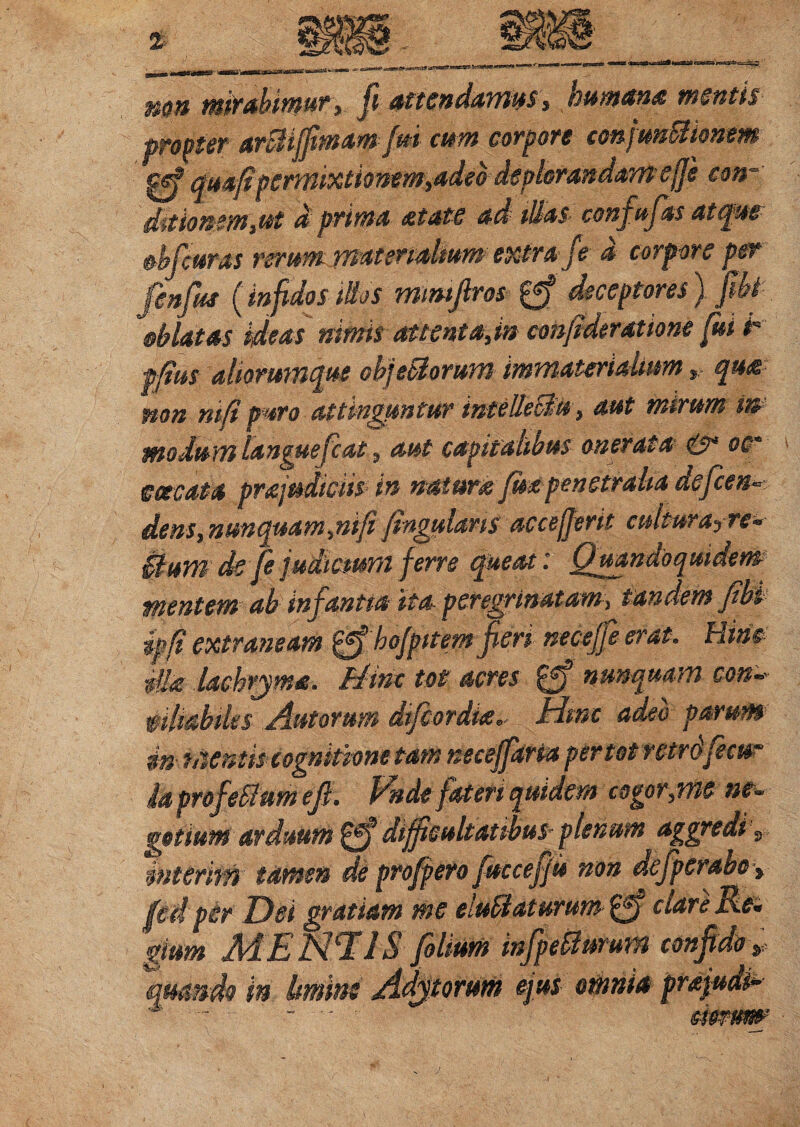 2
non mirabimur, si attendamus, humanæ mentis
propter arctissimam sui cum corpore conjunctionem
& quasi permixtionem, adeò deplorandam esse con-
ditionem, ut à prima ætate ad illas confusas atque
obscuras rerum materialium extra se à corpore per
sensus (infidos illos ministros & deceptores) sibi
oblatas ideas nimis attenta, in consideratione sui i-
psius aliorumque objectorum immaterialium, quæ
non nisi puro attinguntur intellectu, aut mirum in
modum languescat, aut capitalibus onerata & oc-
cæcata præjudiciis in naturæ suæ penetralia descen-
dens, nunquam, nisi singularis accesserit cultura, re-
ctum de se judicium ferre queat: Quandoquidem
mentem ab infantia ita peregrinatam, tandem sibi
ipsi extraneam & hospitem fieri necesse erat. Hinc
illæ lachrymæ. Hinc tot acres & nunquam con-
ciliabiles Autorum discordiæ. Hinc adeò parum
in mentis cognitione tam necessaria per tot retrò secu-
la profectum est. Vnde fateri quidem cogor, me ne-
gotium arduum & difficultatibus plenum aggredi,
interim tamen de prospero successu non desperabo,
sed per Dei gratiam me eluctaturum & clarè Re-
gium MENTIS solium inspecturum confido,
quando in limine Adytorum ejus omnia præjudi-
ciorum